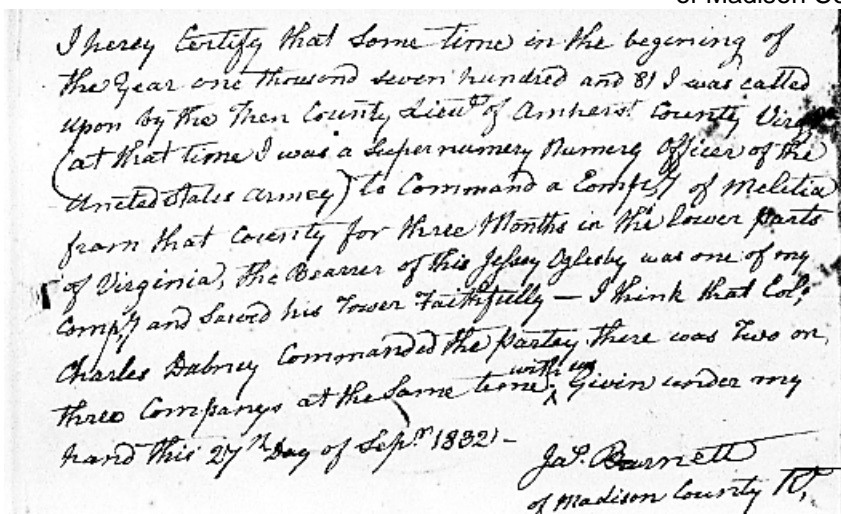 of Madison Co
I herey Certify that Some time in the begining of
the Year one thousand seven hundred and 81 I was called
upon by the Then County Lieut of Amherst County Virga
(at that time I was a Supernumery Numery Officer of the
United States Armey) to Command a Compy of Melitia
from that County for three Months in the lower parts
of Virginia, the Bearer of this Jessey Oglesby was one of my
Compy and Sarved his Tower Faithfully — I think that Colo
Charles Dabney Commanded the partey there was Two or
three Companys at the Same time with us, Givin under my
hand this 27th Day of Sepr 1832 –
Jas. Barnett
of Madison County Ky,